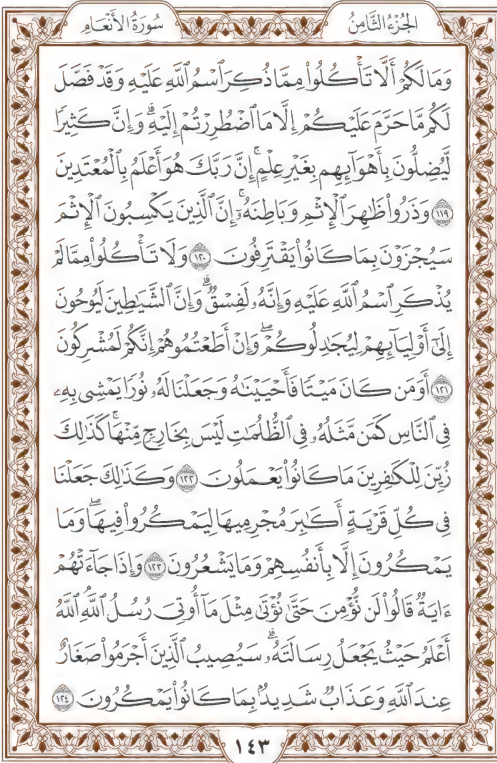 سُورَةُ الأَنْعَامِ
الجُزْءُ الثَّامِنُ
وَمَا لَكُمْ أَلَّا تَأْكُلُوا۟ مِمَّا ذُكِرَ ٱسْمُ ٱللَّهِ عَلَيْهِ وَقَدْ فَصَّلَ
لَكُم مَّا حَرَّمَ عَلَيْكُمْ إِلَّا مَا ٱضْطُرِرْتُمْ إِلَيْهِ ۗ وَإِنَّ كَثِيرًا
لَّيُضِلُّونَ بِأَهْوَآئِهِم بِغَيْرِ عِلْمٍ ۚ إِنَّ رَبَّكَ هُوَ أَعْلَمُ بِٱلْمُعْتَدِينَ
١١٩ وَذَرُوا۟ ظَـٰهِرَ ٱلْإِثْمِ وَبَاطِنَهُۥٓ ۚ إِنَّ ٱلَّذِينَ يَكْسِبُونَ ٱلْإِثْمَ
سَيُجْزَوْنَ بِمَا كَانُوا۟ يَقْتَرِفُونَ ١٢٠ وَلَا تَأْكُلُوا۟ مِمَّا لَمْ
يُذْكَرِ ٱسْمُ ٱللَّهِ عَلَيْهِ وَإِنَّهُۥ لَفِسْقٌ ۗ وَإِنَّ ٱلشَّيَـٰطِينَ لَيُوحُونَ
إِلَىٰٓ أَوْلِيَآئِهِمْ لِيُجَـٰدِلُوكُمْ ۖ وَإِنْ أَطَعْتُمُوهُمْ إِنَّكُمْ لَمُشْرِكُونَ
١٢١ أَوَمَن كَانَ مَيْتًا فَأَحْيَيْنَـٰهُ وَجَعَلْنَا لَهُۥ نُورًا يَمْشِى بِهِۦ
فِى ٱلنَّاسِ كَمَن مَّثَلُهُۥ فِى ٱلظُّلُمَـٰتِ لَيْسَ بِخَارِجٍ مِّنْهَا ۚ كَذَٰلِكَ
زُيِّنَ لِلْكَـٰفِرِينَ مَا كَانُوا۟ يَعْمَلُونَ ١٢٢ وَكَذَٰلِكَ جَعَلْنَا
فِى كُلِّ قَرْيَةٍ أَكَـٰبِرَ مُجْرِمِيهَا لِيَمْكُرُوا۟ فِيهَا ۖ وَمَا
يَمْكُرُونَ إِلَّا بِأَنفُسِهِمْ وَمَا يَشْعُرُونَ ١٢٣ وَإِذَا جَآءَتْهُمْ
ءَايَةٌ قَالُوا۟ لَن نُّؤْمِنَ حَتَّىٰ نُؤْتَىٰ مِثْلَ مَآ أُوتِىَ رُسُلُ ٱللَّهِ ۘ ٱللَّهُ
أَعْلَمُ حَيْثُ يَجْعَلُ رِسَالَتَهُۥ ۗ سَيُصِيبُ ٱلَّذِينَ أَجْرَمُوا۟ صَغَارٌ
عِندَ ٱللَّهِ وَعَذَابٌ شَدِيدٌۢ بِمَا كَانُوا۟ يَمْكُرُونَ ١٢٤
١٤٣